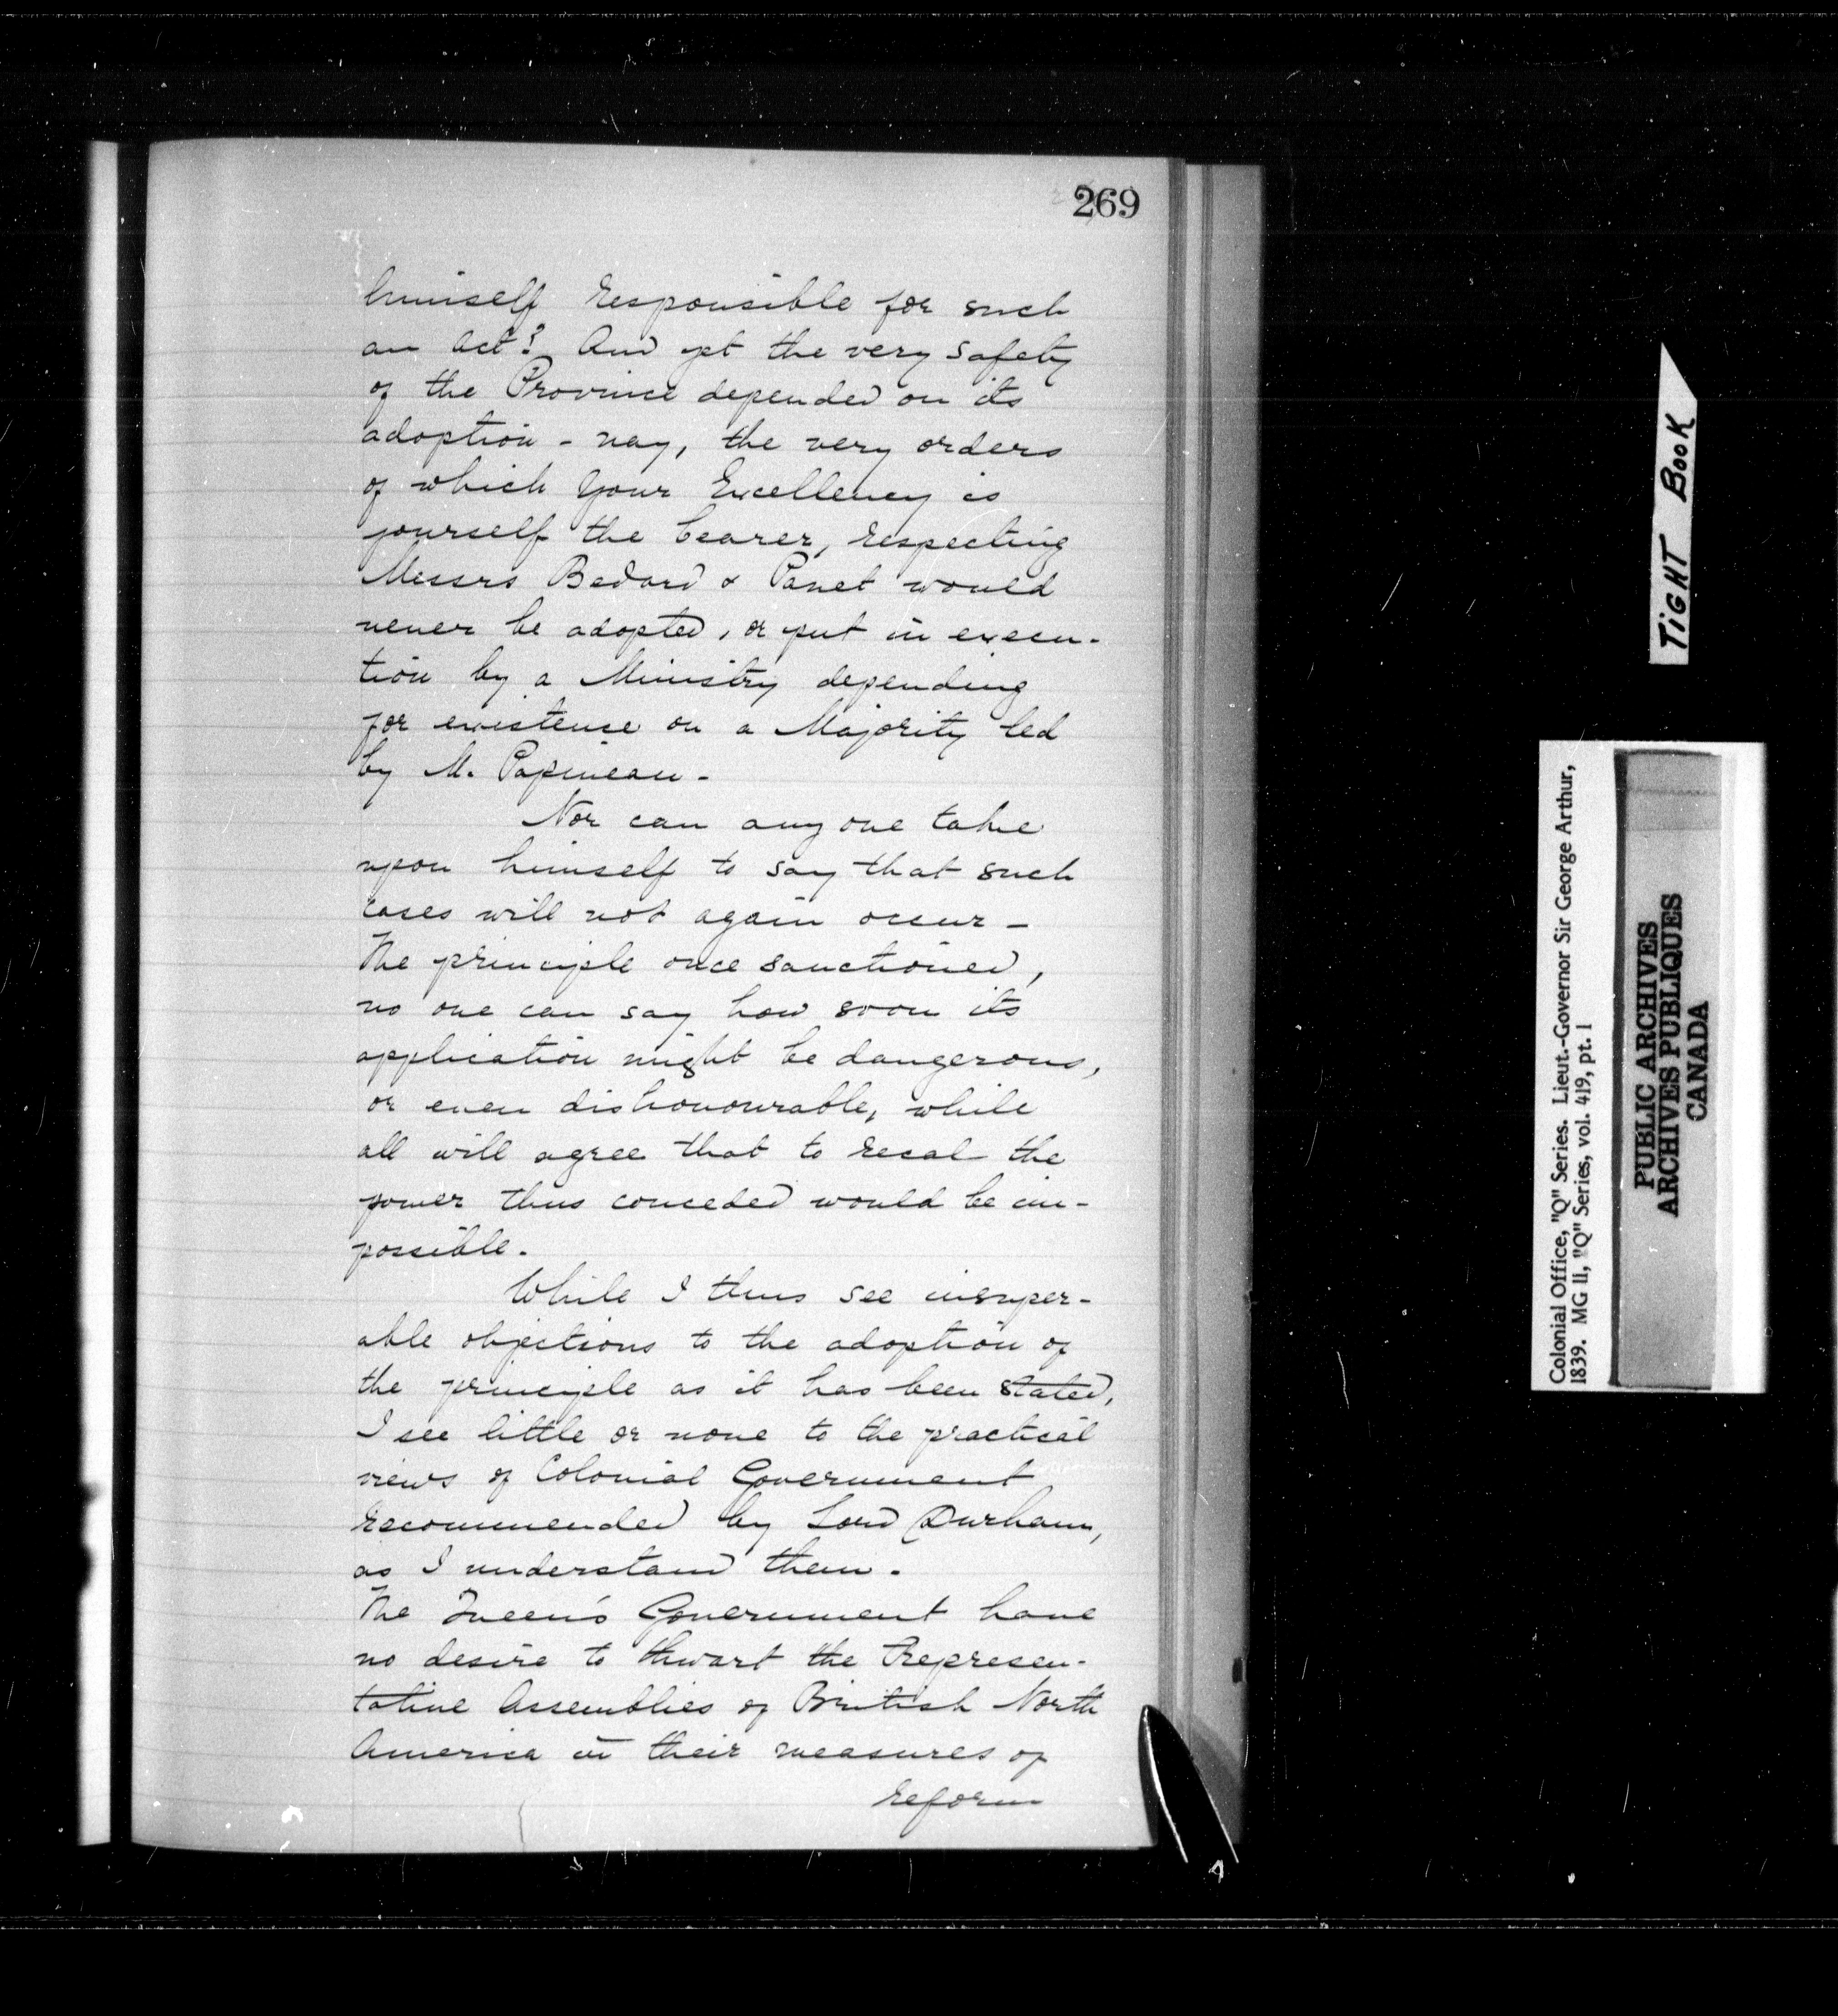 269
himself responsible for such
an act? And yet the very safety
of the Province depended on its
adoption - nay, the very orders
of which Your Excellency is
yourself the bearer, respecting
Messrs Bedard & Panet would
never be adopted, or put in execu-
tion by a Ministry depending
for existense on a Majority led
by M. Papineau -
Nor can any one take
upon himself to say that such
cases will not again occur -
The principle once sanctioned,
no one can say how soon its
application might be dangerous,
or even dishonourable, while
all will agree that to recal the
power thus conceded would be im-
possible.
While I thus see insuper-
able objections to the adoption of
the principle as it has been stated,
I see little or none to the practical
views of Colonial Government
recommended by Lord Durham,
as I understand them.
The Queen's Government have
no desire to thwart the Represen-
tative Assemblies of British North
America in their measures of
reform
TIGHT BOOK
Colonial Office, "Q" Series. Lieut.-Governor Sir George Arthur,
1839. MG II, "Q" Series, vol. 419, pt. 1
PUBLIC ARCHIVES
ARCHIVES PUBLIQUES
CANADA